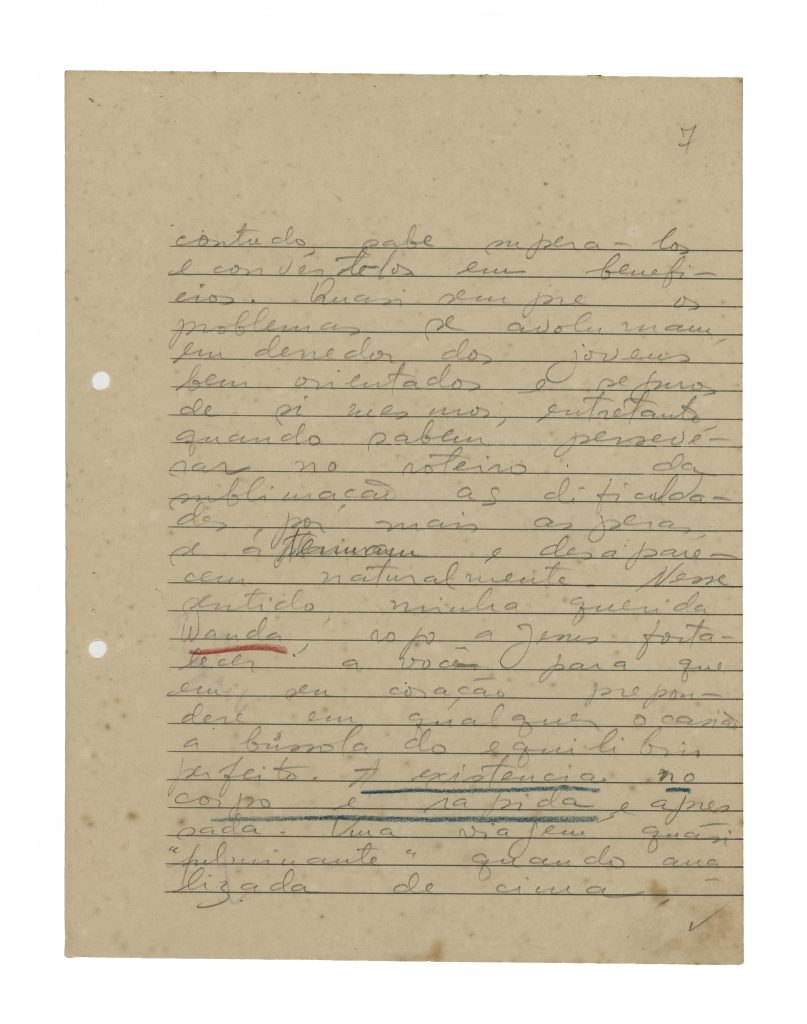 7
contudo, sabe supera-los
e convértelos em benefi-
cios. Quasi sempre os
problemas se avolumam,
em derredor dos jovens
bem orientados e seguros
de si mesmos, entretanto,
quando sabem persevé-
rar no roteiro da
sublimação as dificulda-
des, por mais asperas,
se áteniram e desapare-
cem naturalmente. Nesse
sentido, minha querida
Wanda, rogo a Jesus forta-
lecer a você para que
em seu coração prepon-
dere em qualquer ocasião
a bússola do equilibrio
perfeito. A existencia no
corpo é rapida e apres
sada. Uma viagem quási
"fulminante" quando ana
lizada de cima,